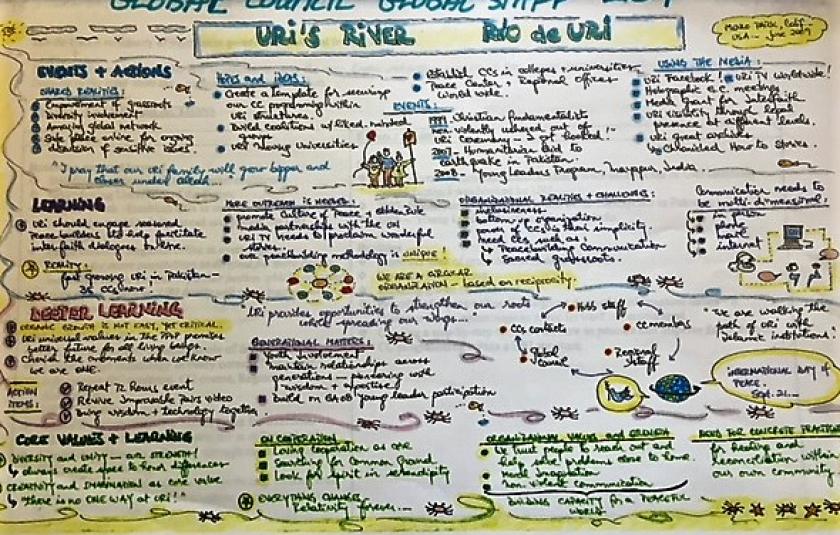 GLOBAL COUNCIL GLOBAL STAFF
URI'S RIVER RÍO de URI
Menlo Park, Calif.
USA - June 2009
EVENTS + ACTIONS
SHARED REALITIES:
Empowerment of grassroots
Diversity involvement
Amazing global network
Safe place online for ongoing
discussion of sensitive issues.
"I pray that our URI family will grow bigger and
HOPES and IDEAS:
Create a template for securing
our CC programming within
URI structures.
Build coalitions w/ liked minded
groups
Universities
Establish CCs in colleges + universities
Peace Center + Regional offices
World wide.
EVENTS:
Christian fundamentalists
non violently ushered out of
URI ceremony
Humanitarian aid to
earthquake in Pakistan.
2008 - Young Leaders Program, India.
USING THE MEDIA:
URI Facebook! URI TV worldwide!
Holographic G.C. meetings
Media Grant for Interfaith
URI visibility through
presence at different levels.
URI guest
Chronicled "How to" Stories.
LEARNING
URI should engage seasoned
Peace builders to help facilitate
interfaith dialogues online.
REALITY:
fast growing URI in Pakistan -
35 CCs now!
MORE OUTREACH IS NEEDED:
promote Culture of Peace +
media partnerships with the UN
URI TV needs to proclaim wonderful
stories.
our peacebuilding methodology is unique!
WE ARE A CIRCULAR
ORGANIZATION - based on reciprocity.
ORGANIZATIONAL REALITIES + CHALLENGES:
inclusiveness
bottom up organization
power of CCs is their simplicity
need CCs such as:
Peacebuilding Communication
Sacred grassroots.
Communication needs to
be multi-dimensional.
in person
phone
internet
DEEPER LEARNING
ORGANIC GROWTH IS NOT EASY, YET CRITICAL.
URI universal values in the PPP promises
better future of living beings
Cherish the moments when we know
we are ONE.
ACTION
ITEMS:
Repeat 72 Hours event
Revive Improbable Pairs video
Bring wisdom + technology together.
URI provides opportunities to strengthen our roots
while spreading our wings...
GENERATIONAL MATTERS:
Youth Involvement
maintain relationships across
generations - pioneering with
wisdom + expertise
build on young leader participation
Hub staff
CCs contacts
CC members
Global
Council
Regional
Staff
"We are walking the
path of URI with
Islamic institutions."
INTERNATIONAL DAY of
PEACE.
Sept. 21...
CORE VALUES + LEARNING
DIVERSITY and UNITY - OUR STRENGTH!
always create space to honor differences
CREATIVITY and IMAGINATION as core value
"There is no ONE WAY at URI!"
ON COOPERATION
Living cooperation as one
Searching for Common Ground
Look for spirit in serendipity
EVERYTHING CHANGES
Relativity forever...
ORGANIZATIONAL VALUES and GROWTH
We trust people to reach out and
help solve problems close to home.
Youth Imagination
Non violent communication
BUILDING CAPACITY for a PEACEFUL
WORLD
NEED FOR CONCRETE PRACTICES
for healing and
reconciliation within
our own community